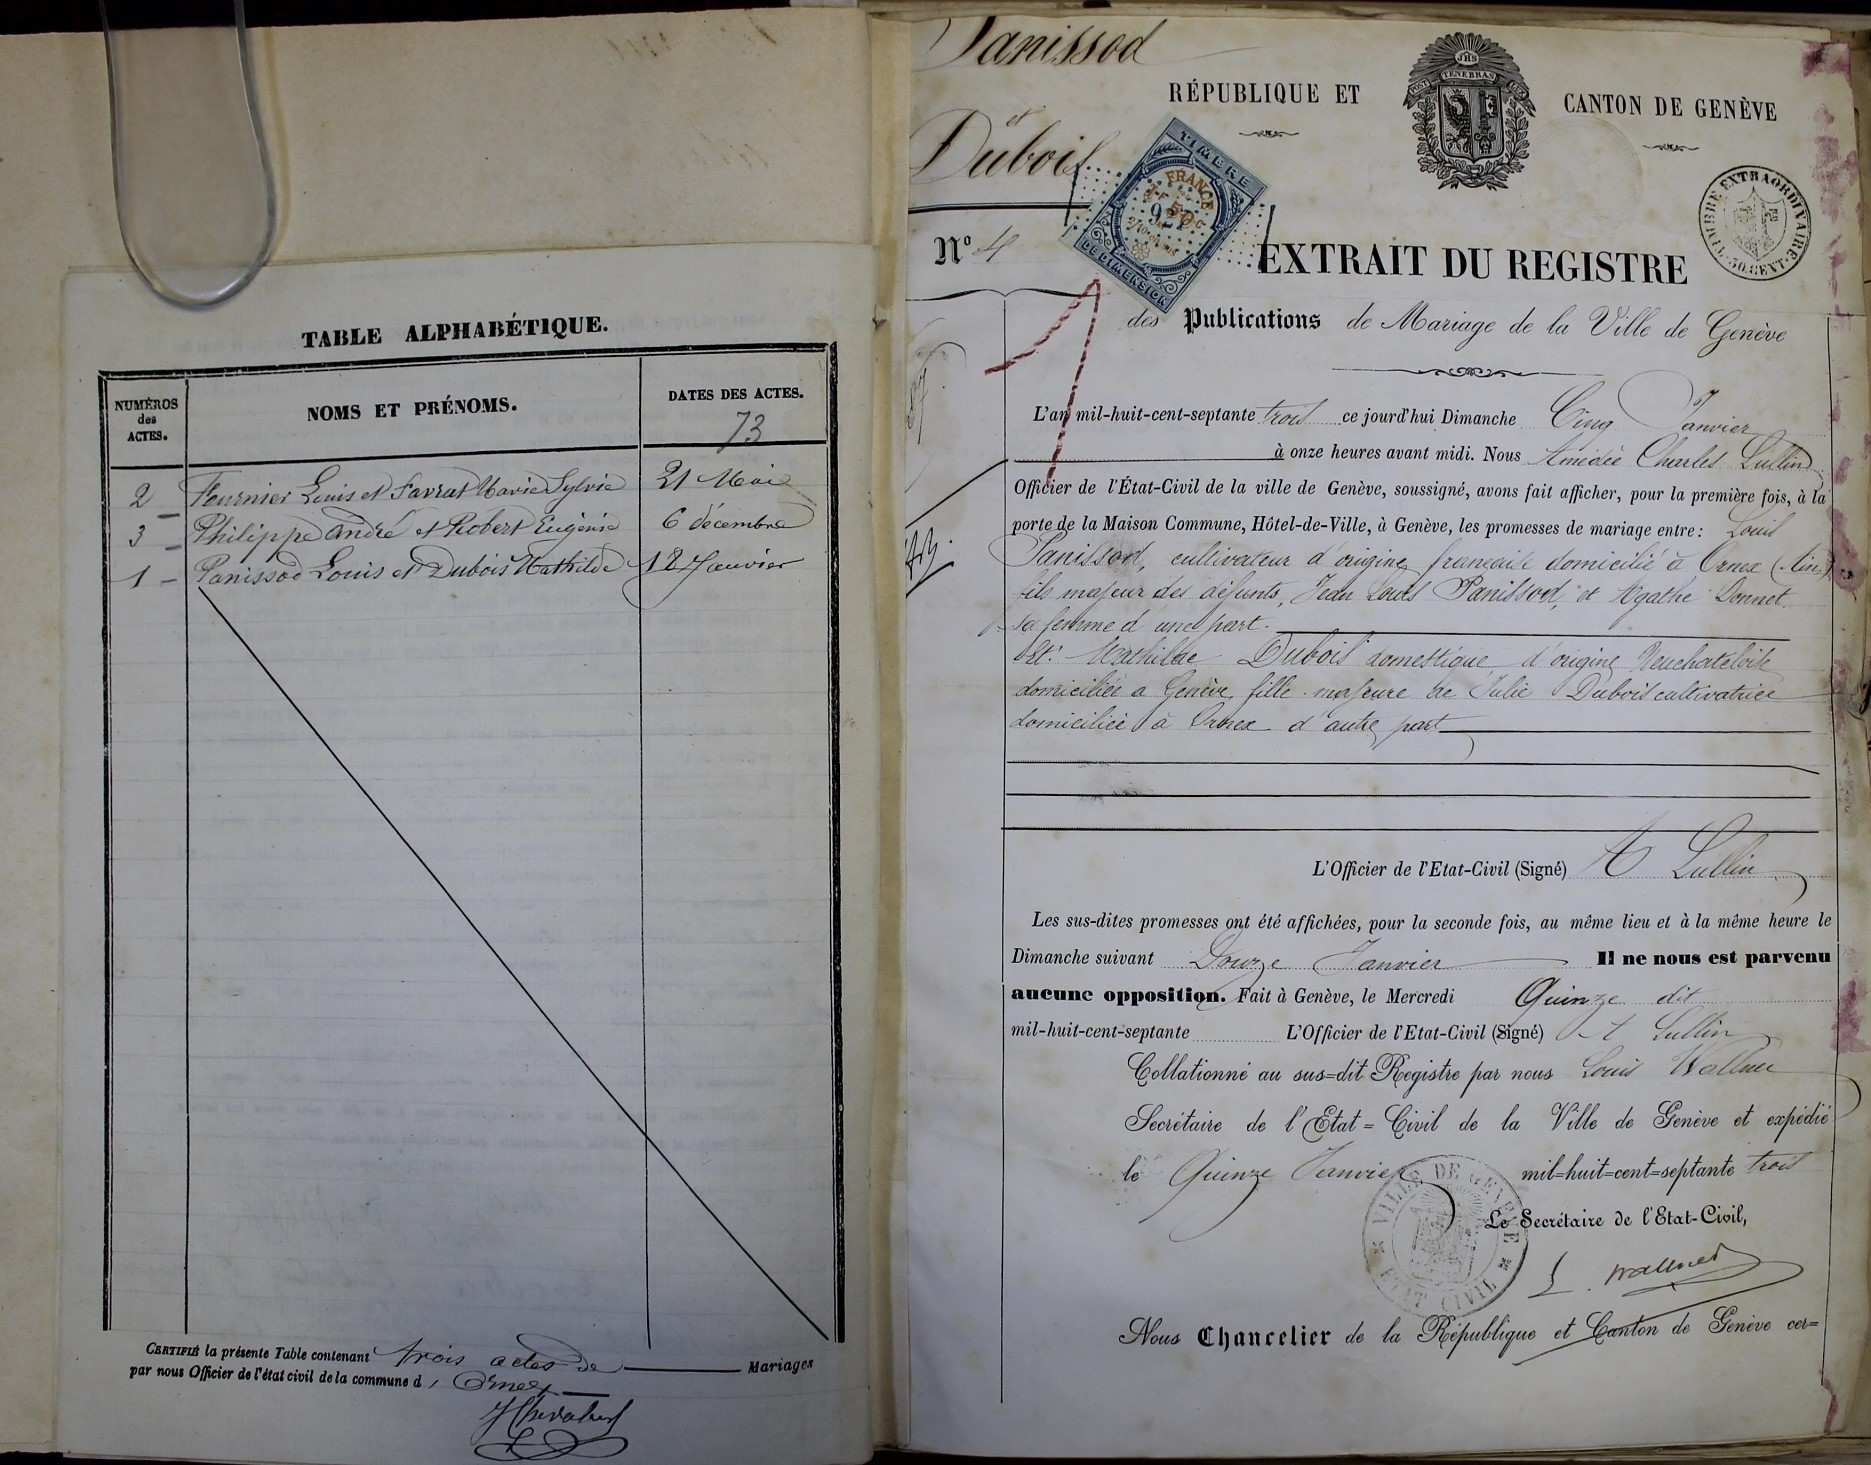 TABLE ALPHABÉTIQUE.
NUMÉROS des ACTES.
NOMS ET PRÉNOMS.
DATES DES ACTES.
73
2 Fournier Louis et Favrat Marie Sylvie 21 Mai
3 Philippe André et Robert Eugénie 6 décembre
1 Panissod Louis et Dubois Mathilde 18 Janvier
CERTIFIÉ la présente Table contenant trois actes de Mariages
par nous Officier de l'état civil de la commune d'Ornex
Panissod
et
Dubois
RÉPUBLIQUE ET
CANTON DE GENÈVE
JHS
POST TENEBRAS LUX
TIMBRE
FRANCE
50c
DE DIMENSION
TIMBRE EXTRAORDINAIRE
50.CENT.
No 4
EXTRAIT DU REGISTRE
des Publications de Mariage de la Ville de Genève
L'an mil-huit-cent-septante trois ce jourd'hui Dimanche Cinq Janvier
à onze heures avant midi. Nous Amédée Charles Lullin
Officier de l'État-Civil de la ville de Genève, soussigné, avons fait afficher, pour la première fois, à la
porte de la Maison Commune, Hôtel-de-Ville, à Genève, les promesses de mariage entre: Louis
Panissod, cultivateur d'origine française domicilié à Ornex (Ain),
fils majeur des défunts, Jean Louis Panissod, et Agathe Donnet
sa femme d'une part.
Et: Mathilde Dubois domestique d'origine Neuchateloise
domiciliée à Genève, fille majeure de Julie Dubois cultivatrice
domiciliée à Ornex d'autre part
L'Officier de l'Etat-Civil (Signé) A Lullin
Les sus-dites promesses ont été affichées, pour la seconde fois, au même lieu et à la même heure le
Dimanche suivant Douze Janvier Il ne nous est parvenu
aucune opposition. Fait à Genève, le Mercredi Quinze dit
mil-huit-cent-septante L'Officier de l'Etat-Civil (Signé) A Lullin
Collationné au sus=dit Registre par nous Louis Wallner
Secrétaire de l'Etat=Civil de la Ville de Genève et expédié
le Quinze Janvier mil=huit=cent=septante trois
VILLE DE GENÈVE
ETAT CIVIL
Le Secrétaire de l'Etat-Civil,
L. Wallner
Nous Chancelier de la République et Canton de Genève cer=